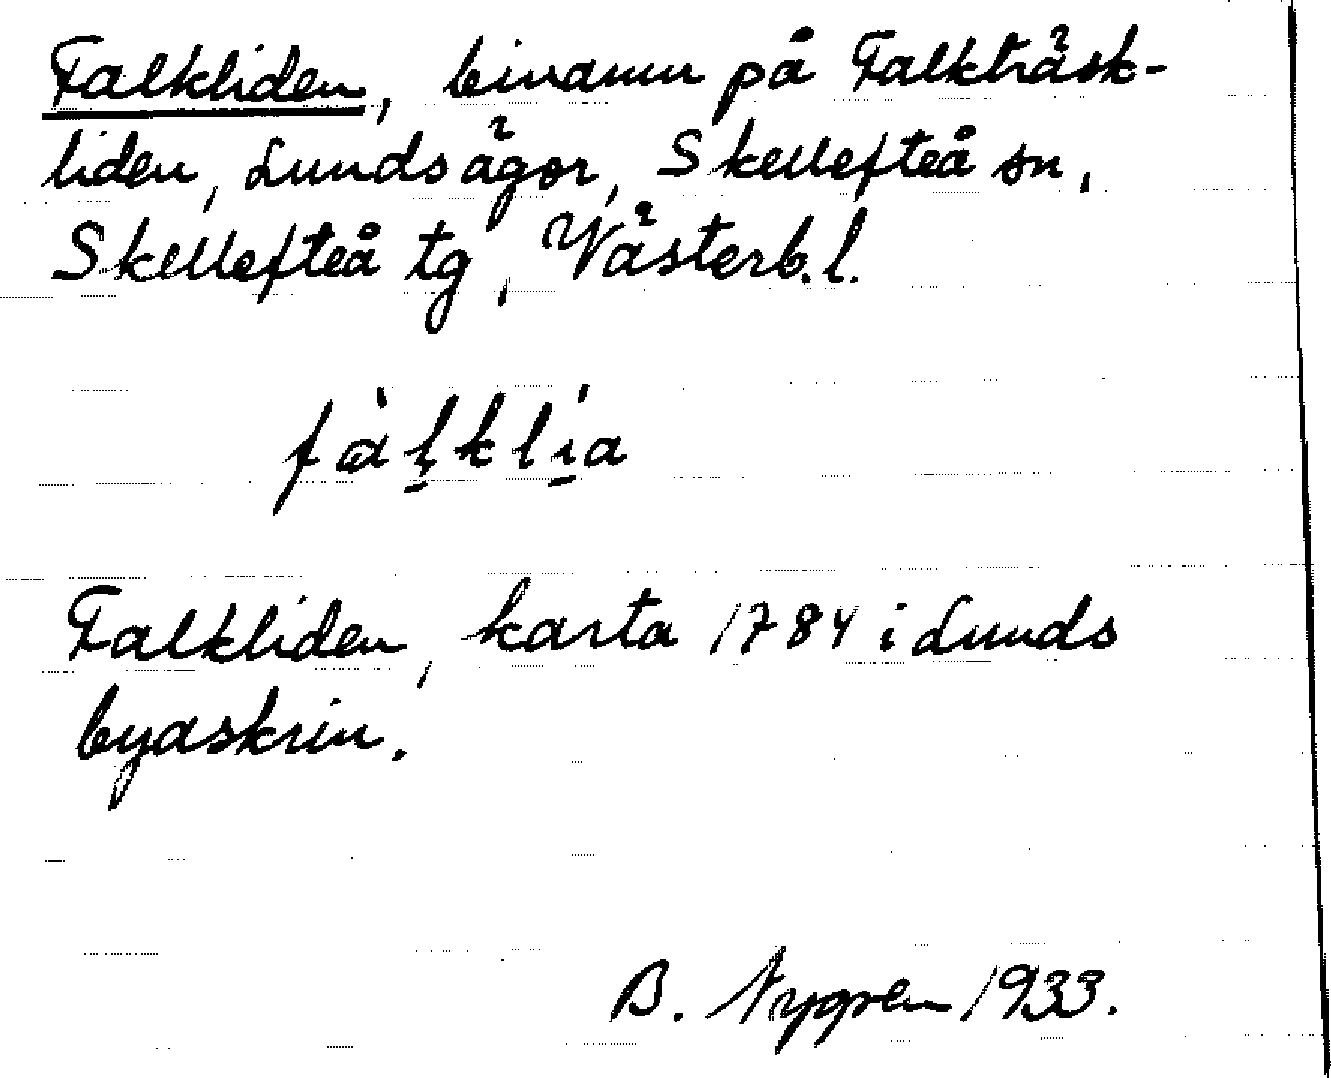 Falkliden, binamn på Falkträsk-
liden, Lunds ägor, Skellefteå sn,
Skellefteå tg, Västerb. l.
fàl̥klía
Falkliden, karta 1784 i Lunds
byaskrin.
B. Nygren 1933.